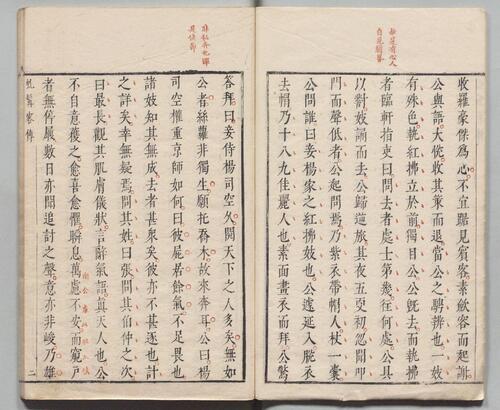 收羅豪傑為心不宜踞見賓客素歛容而起謝
公與語大悅收其策而退當公之騁辨也一妓
有殊色執紅拂立於前獨目公公旣去而執拂
者臨軒指吏曰問去者處士第幾住何處公具
以對妓誦而去公歸逆旅其夜五更初忽聞叩
門而聲低者公起問焉乃紫衣帶帽人杖一囊
公問誰曰妾楊家之紅拂妓也公遽延入脫衣
去帽乃十八九佳麗人也素面畫衣而拜公驚
答拜曰妾侍楊司空久閱天下之人多矣無如
公者絲蘿非獨生願托喬木故來奔耳公曰楊
司空權重京師如何曰彼屍居餘氣不足畏也
諸妓知其無成去者甚衆矣彼亦不甚逐也計
之詳矣幸無疑焉問其姓曰張問其伯仲之次
曰最長觀其肌膚儀狀言辭氣語真天人也公
不自意獲之愈喜愈懼瞬息萬慮不安而窺戶
者無停屨數日亦聞追討之聲意亦非峻乃雄
虬髯客傳 二